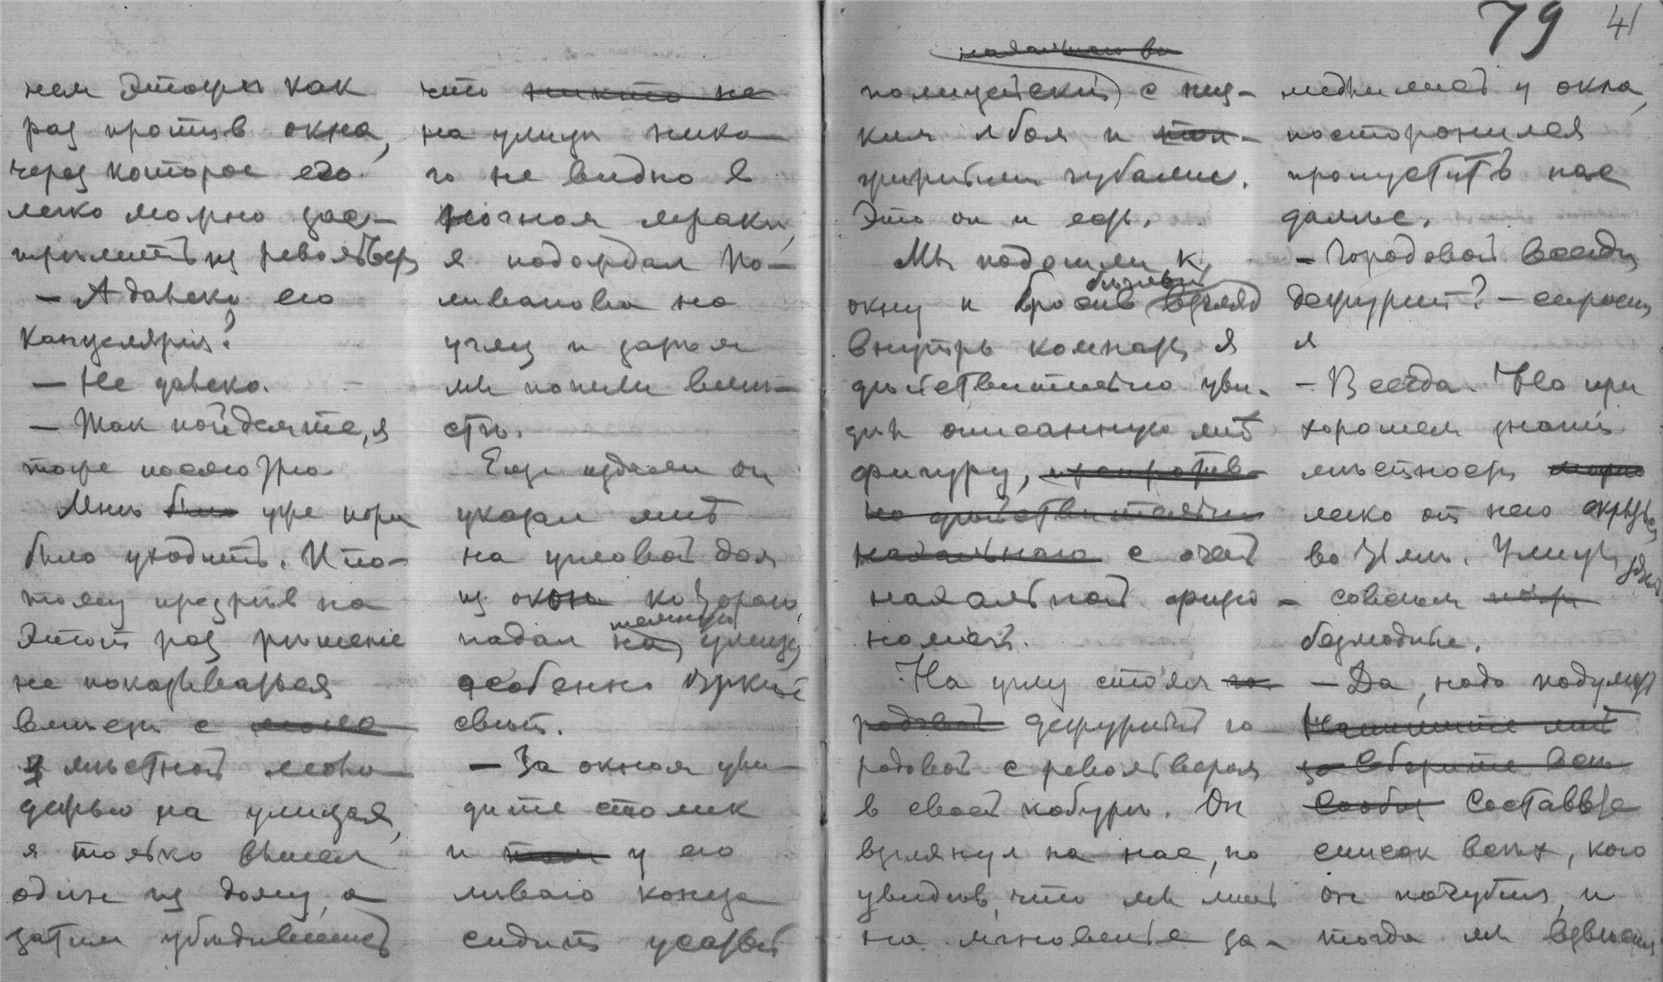 79 41
нем этаже как
раз против окна,
через которое его
легко можно зас-
трѣлить из револьвера
— А далеко его
Канцелярія?
— Не далеко.
— Так пойдемте, я
тоже посмотрю
Мнѣ было уже пора
было уходить. И по-
тому презрѣв на
этот раз рѣшеніе
не показываться
вмѣстѣ с
мѣстной моло-
дежью на улицах,
я только вышел
один из дому, а
затѣм убѣдившись
что никто не
на улицѣ нико-
го не видно в
ночном мракѣ,
я подождал По-
ливанова на
углу и затѣм
мы пошли вмѣ-
стѣ.
Еще издали он
указал мнѣ
на угловой дом
из окон котораго
падал на темную улицу
особенно яркій
свѣт.
— За окном уви-
дите столик
и там у его
лѣваго конца
сидит усатый
полицейскій с низ-
ким лбом и
губами.
Это он и есть.
Мы подошли к
окну и бросив бѣглый взгляд
внутрь комнаты, я
дѣйствительно уви-
дѣл описанную мнѣ
фигуру,
но дѣйствительно
нахальнаго с очень
нахальной физіо-
номіей.
На углу стоял го-
родовой дежурный го-
родовой с револьвером
в своей кобурѣ. Он
взглянул на нас, но
увидѣв, что мы лишь
на мгновенье за-
медлились у окна,
посторонился
пропустить нас
дальше.
— Городовой всегда
дежурит? — спросил
я
— Всегда. Но при
хорошем знаніи
мѣстности можно
легко от него скрыться
во тьмѣ. Улица здѣсь
совсѣм
безлюдны.
— Да, надо подумать
Напишите мнѣ
Составьте
список всѣх, кого
он погубил, и
тогда мы взвѣсим